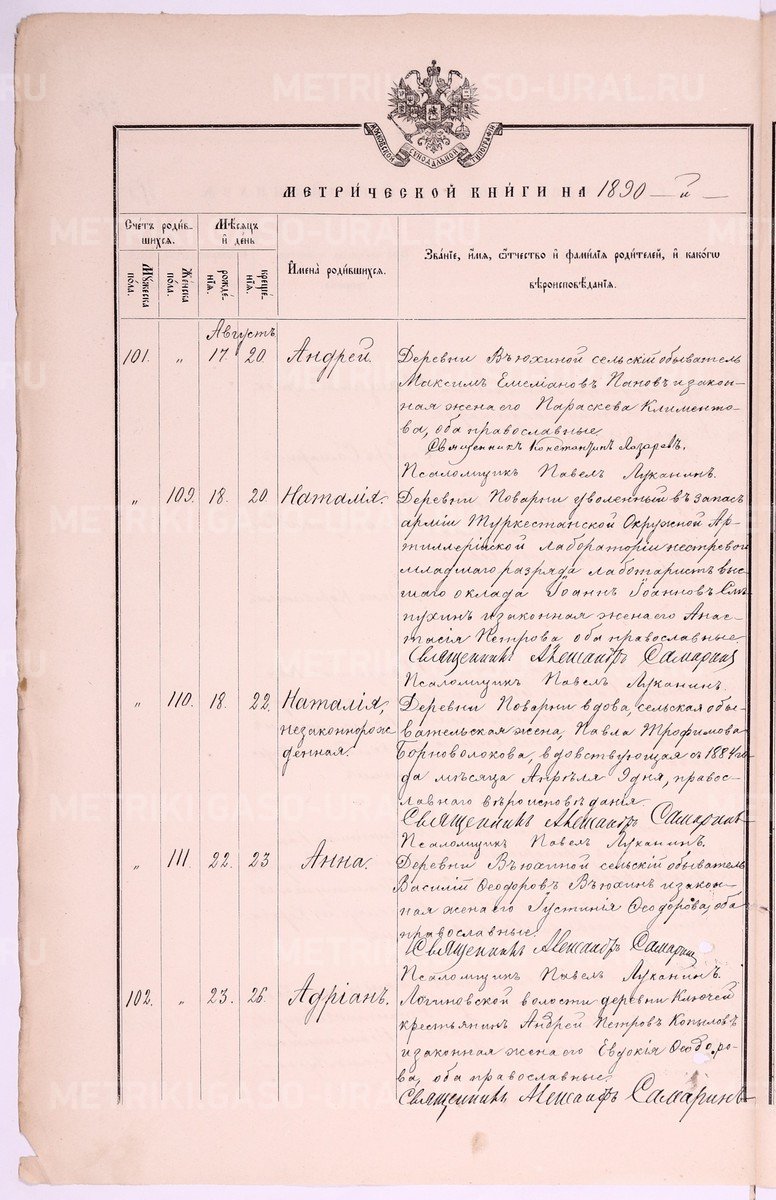 METRIKI.GASO-URAL.RU
МОСКОВСКОЙ СѴНОДАЛЬНОЙ ТИПОГРАФІИ
МЕТРИЧЕСКОЙ КНИГИ НА 1890-й-
Счетъ родив-
шихся.
Мѣсяцъ
и день
Имена родившихся.
Званіе, имя, отчество и фамилія родителей, и какого
вѣроисповѣданія.
Мужеска
пола.
Женска
пола.
рожде-
нія.
креще-
нія.
Августъ
101. „ 17 20 Андрей. Деревни Вьюхиной сельскій обыватель
Максимъ Емеліановъ Пановъ и закон-
ная жена его Параскева Климентo-
ва, оба православные.
Священникъ Константинъ Лазаревъ.
Псаломщикъ Павелъ Луканинъ.
„ 109. 18. 20 Наталія. Деревни Поварни уволенный въ запасъ
арміи Туркестанской Окружной Ар-
тиллерійской лабораторіи нестроевой
младшаго разряда лаботаристъ выс-
шаго оклада Іоаннъ Іоанновъ Слѣ-
пухинъ и законная жена его Анас-
тасія Петрова оба православные.
Священникъ Александръ Самаринъ
Псаломщикъ Павелъ Луканинъ.
„ 110. 18. 22. Наталія, Деревни Поварни вдова, сельская обы-
незаконнорож- вательская жена, Павла Трофимова
денная. Борноволокова, вдовствующая съ 1884 го-
да мѣсяца Апрѣля 9 дня, право-
славнаго вѣроисповѣданія.
Священникъ Александръ Самаринъ
Псаломщикъ Павелъ Луканинъ.
„ 111. 22. 23 Анна. Деревни Вьюхиной сельскій обыватель
Василій Ѳеодоровъ Вьюхинъ и закон-
ная жена его Іустинія Ѳеодорова, оба
православные.
Священникъ Александръ Самаринъ
Псаломщикъ Павелъ Луканинъ.
102. „ 23. 26. Адріанъ. Логиновской волости деревни Ключей
крестьянинъ Андрей Петровъ Копыловъ
и законная жена его Евдокія Ѳеодоро-
ва, оба православные.
Священникъ Александръ Самаринъ